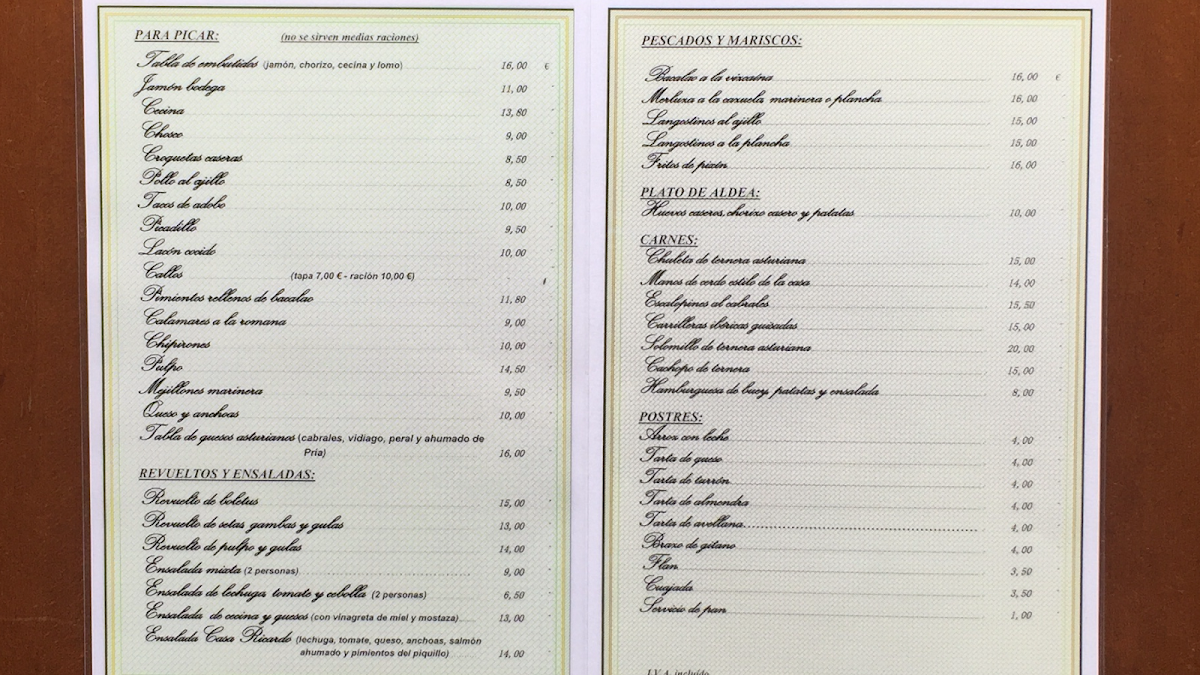 PARA PICAR: (no se sirven medias raciones)
Tabla de embutidos (jamón, chorizo, cecina y lomo) 16,00 €
Jamón bodega 11,00
Cecina 13,80
Chosco 9,00
Croquetas caseras 8,50
Pollo al ajillo 8,50
Tacos de adobo 10,00
Picadillo 9,50
Lacón cocido 10,00
Callos (tapa 7,00 € - ración 10,00 €)
Pimientos rellenos de bacalao 11,80
Calamares a la romana 9,00
Chipirones 10,00
Pulpo 14,50
Mejillones marinera 9,50
Queso y anchoas 10,00
Tabla de quesos asturianos (cabrales, vidiago, peral y ahumado de
Pria) 16,00
REVUELTOS Y ENSALADAS:
Revuelto de boletus 15,00
Revuelto de setas, gambas y gulas 13,00
Revuelto de pulpo y gulas 14,00
Ensalada mixta (2 personas) 9,00
Ensalada de lechuga, tomate y cebolla (2 personas) 6,50
Ensalada de cecina y quesos (con vinagreta de miel y mostaza) 13,00
Ensalada Casa Ricardo (lechuga, tomate, queso, anchoas, salmón
ahumado y pimientos del piquillo) 14,00
PESCADOS Y MARISCOS:
Bacalao a la vizcaína 16,00 €
Merluza a la cazuela, marinera o plancha 16,00
Langostinos al ajillo 15,00
Langostinos a la plancha 15,00
Fritos de pixín 16,00
PLATO DE ALDEA:
Huevos caseros, chorizo casero y patatas 10,00
CARNES:
Chuleta de ternera asturiana 15,00
Manos de cerdo estilo de la casa 14,00
Escalopines al cabrales 15,50
Carrilleras ibéricas guisadas 15,00
Solomillo de ternera asturiana 20,00
Cachopo de ternera 15,00
Hamburguesa de buey, patatas y ensalada 8,00
POSTRES:
Arroz con leche 4,00
Tarta de queso 4,00
Tarta de turrón 4,00
Tarta de almendra 4,00
Tarta de avellana 4,00
Brazo de gitano 4,00
Flan 3,50
Cuajada 3,50
Servicio de pan 1,00
I.V.A. incluído